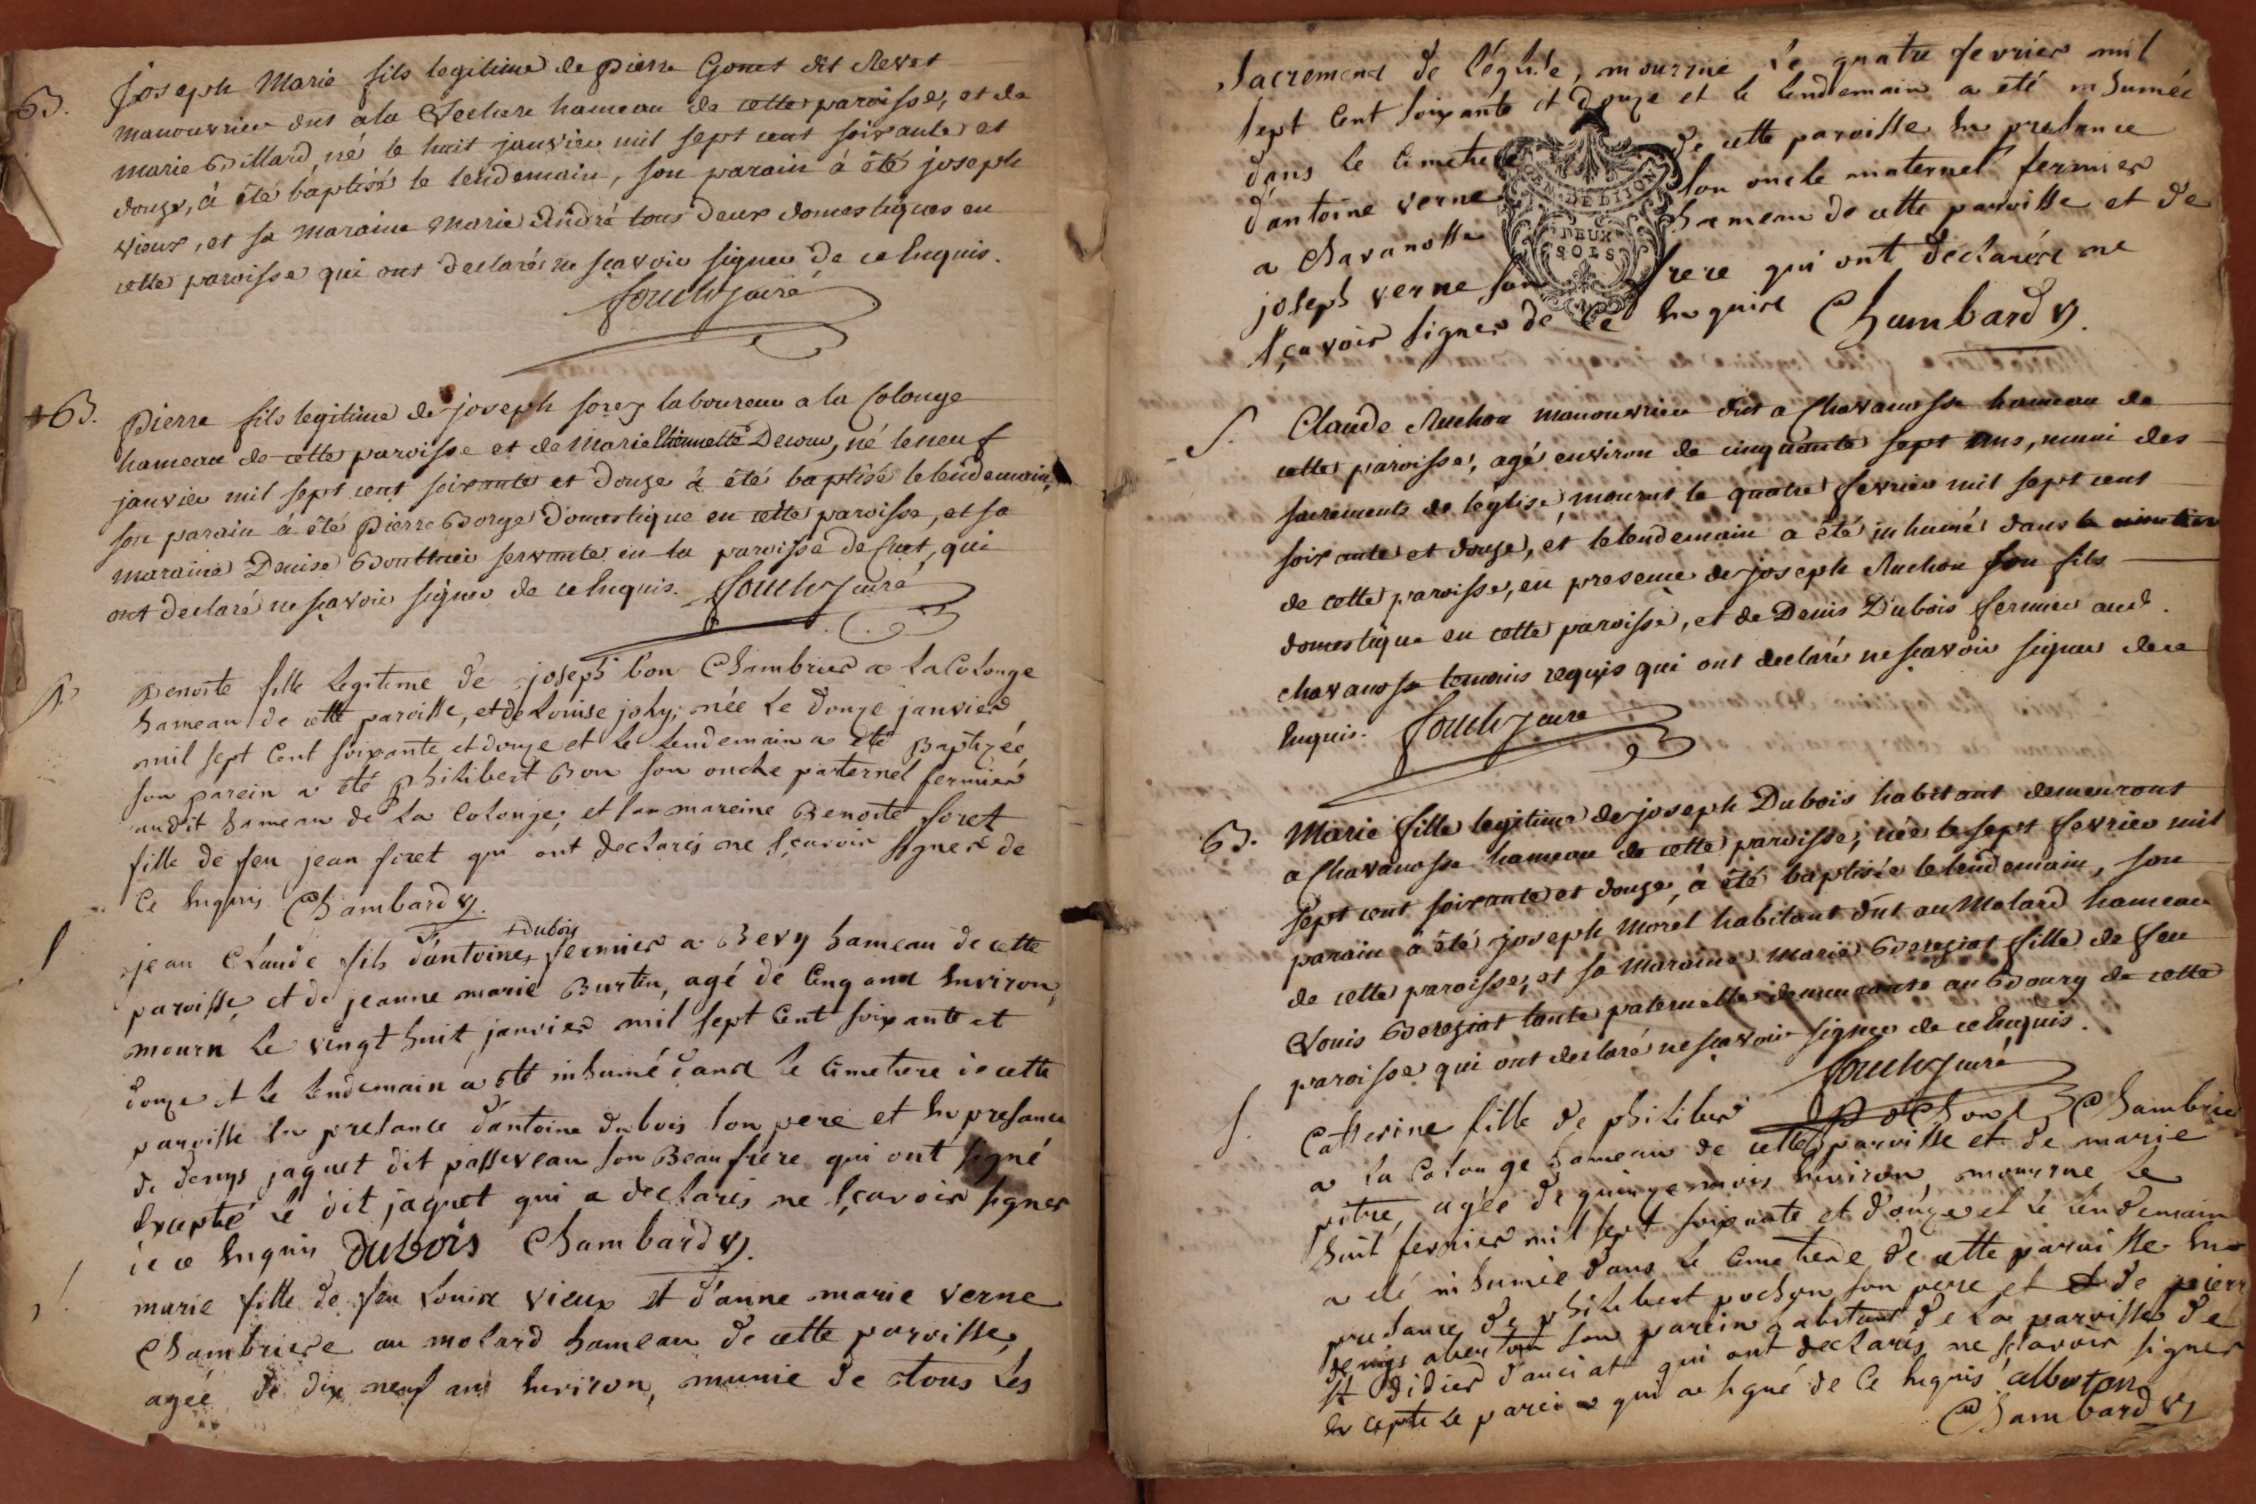 B.
Joseph Marie fils legitime de pierre Gonet dit Revet
manouvrier dnt a la Vechere hameau de cette paroisse, et de
marie Billard, né le huit janvier mil sept cent soixante et
douze, à été baptisé le lendemain, son parain à été joseph
vieux, et sa maraine Marie André tous deux domestiques en
cette paroisse qui ont declarés ne sçavoir signer de ce Enquis.
Fouchy curé
+B.
Pierre fils legitime de joseph forez laboureur a la Colonge
hameau de cette paroisse et de Marie thiennette Decour, né le neuf
janvier mil sept cent soixante et douze à été baptisé le lendemain,
son parain à été pierre Borge Domestique en cette paroisse, et sa
maraine Denise Bouthier servante en la paroisse de Cuet, qui
ont declaré ne sçavoir signer de ce Enquis. Fouchy curé
Benoite fille Legitime de joseph bon Chambrier a La Colonge
hameau de cette paroisse, et de Louise joly; née Le douze janvier
mil sept Cent soixante et douze et Le Lendemain a été Baptizée
son parein a été philibert Bon son oncle paternel fermier
audit hameau de La Colonge; et sa mareine Benoite foret
fille de feu jean foret qui ont declarés ne sçavoir signer de
Ce Enquis Chambard v.
S
+Dubois
jean Claude fils d'antoine, fermier a Bevy hameau de cette
paroisse et de jeanne marie Burtin, agé de Cinq ans Environ,
mouru Le vingt huit janvier mil sept Cent soixante et
douze et Le Lendemain a été inhumé dans Le Cimetiere de cette
paroisse En presance d'antoine dubois son pere et En presance
de denys jaquet dit passeveau son Beau frere qui ont signé
Excepté Le dit jaquet qui a declarés ne sçavoir signer
de ce Enquis dubois Chambard v.
S.
marie fille de feu Louis vieux et d'anne marie verne
Chambriere au molard hameau de cette paroisse,
agée de dix neuf ans Environ, munie de tous Les
Sacrement de l'église, mourrue Le quatre fevrier mil
sept Cent soixante et douze et le Lendemain a été inhumée
dans le Cimetiere de cette paroisse En presance
d'antoine verne son oncle maternel fermier
a Chavanosse hameau de cette paroisse et de
joseph verne son frere qui ont declarés ne
sçavoir signer de Ce Enquist Chambard v.
GEN. DE DIJON
DEUX
SOLS
S.
Claude Ruchon manouvrier dnt a Chavanosse hameau de
cette paroisse, agé environ de cinquante sept ans, muni des
sacrements de leglise, mourut le quatre fevrier mil sept cent
soixante et douze, et le lendemain a été inhumé dans le cimetiere
de cette paroisse, en presence de joseph Ruchon son fils
domestique en cette paroisse, et de Denis Dubois fermier aud.
chavanosse temoins requis qui ont declaré ne sçavoir signer de ce
Enquis. Fouchy cure
B.
Marie fille legitime de joseph Dubois habitant demeurant
a Chavanosse hameau de cette paroisse; née le sept fevrier mil
sept cent soixante et douze, à été baptisée le lendemain, son
parain à été joseph Morel habitant dnt au Molard hameau
de cette paroisse, et sa maraine Marie Bereziat fille de feu
Louis Bereziat tante paternelle demeurante au Bourg de cette
paroisse qui ont declaré ne sçavoir signer de ce Enquis.
Fouchy curé
S.
Catherine fille de philibert pochon Chambrier
a La Colonge hameau de cette paroisse et de marie
pitre, agée de quinze mois Environ, mourrue Le
huit fevrier mil sept soixante et douze et Le Lendemain
a été inhumée dans Le Cimetiere de cette paroisse En
presance de philibert pochon son pere et de pierre
denys son parein habitant de La paroisse de
st didier d'auciat qui ont declarés ne sçavoir signer
Excepté Le parein qui a signé de Ce Enquis alberton
Chambard v.